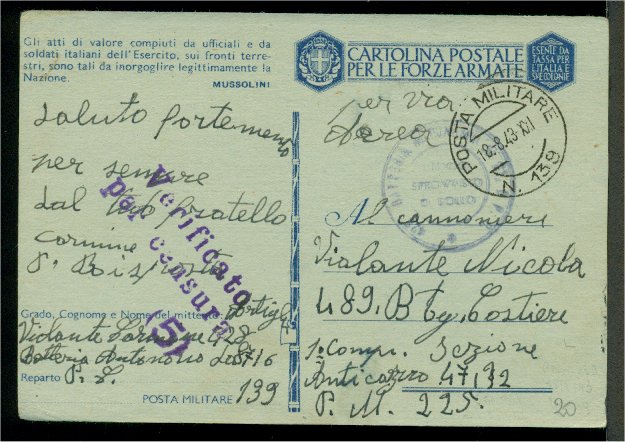 Gli atti di valore compiuti da ufficiali e da
soldati italiani dell'Esercito, sui fronti terre-
stri, sono tali da inorgoglire legittimamente la
Nazione.
MUSSOLINI
saluto fortemente
per sempre
dal tuo fratello
Carmine
Verificato
per censura
5
Grado, Cognome e Nome del mittente
Violante Carmine
Batteria Autonoma
Reparto
POSTA MILITARE 139
CARTOLINA POSTALE
PER LE FORZE ARMATE
ESENTE DA
TASSA PER
L'ITALIA E
SVE COLONIE
per via
aerea
POSTA MILITARE
18.8.43.XXI
N. 139
SPROVVISTO
DI BOLLO
Al cannoniere
Violante Nicola
489. Btg. Costiero
Comp. Sezione
Anticarro 47,32
P. M. 225.
20